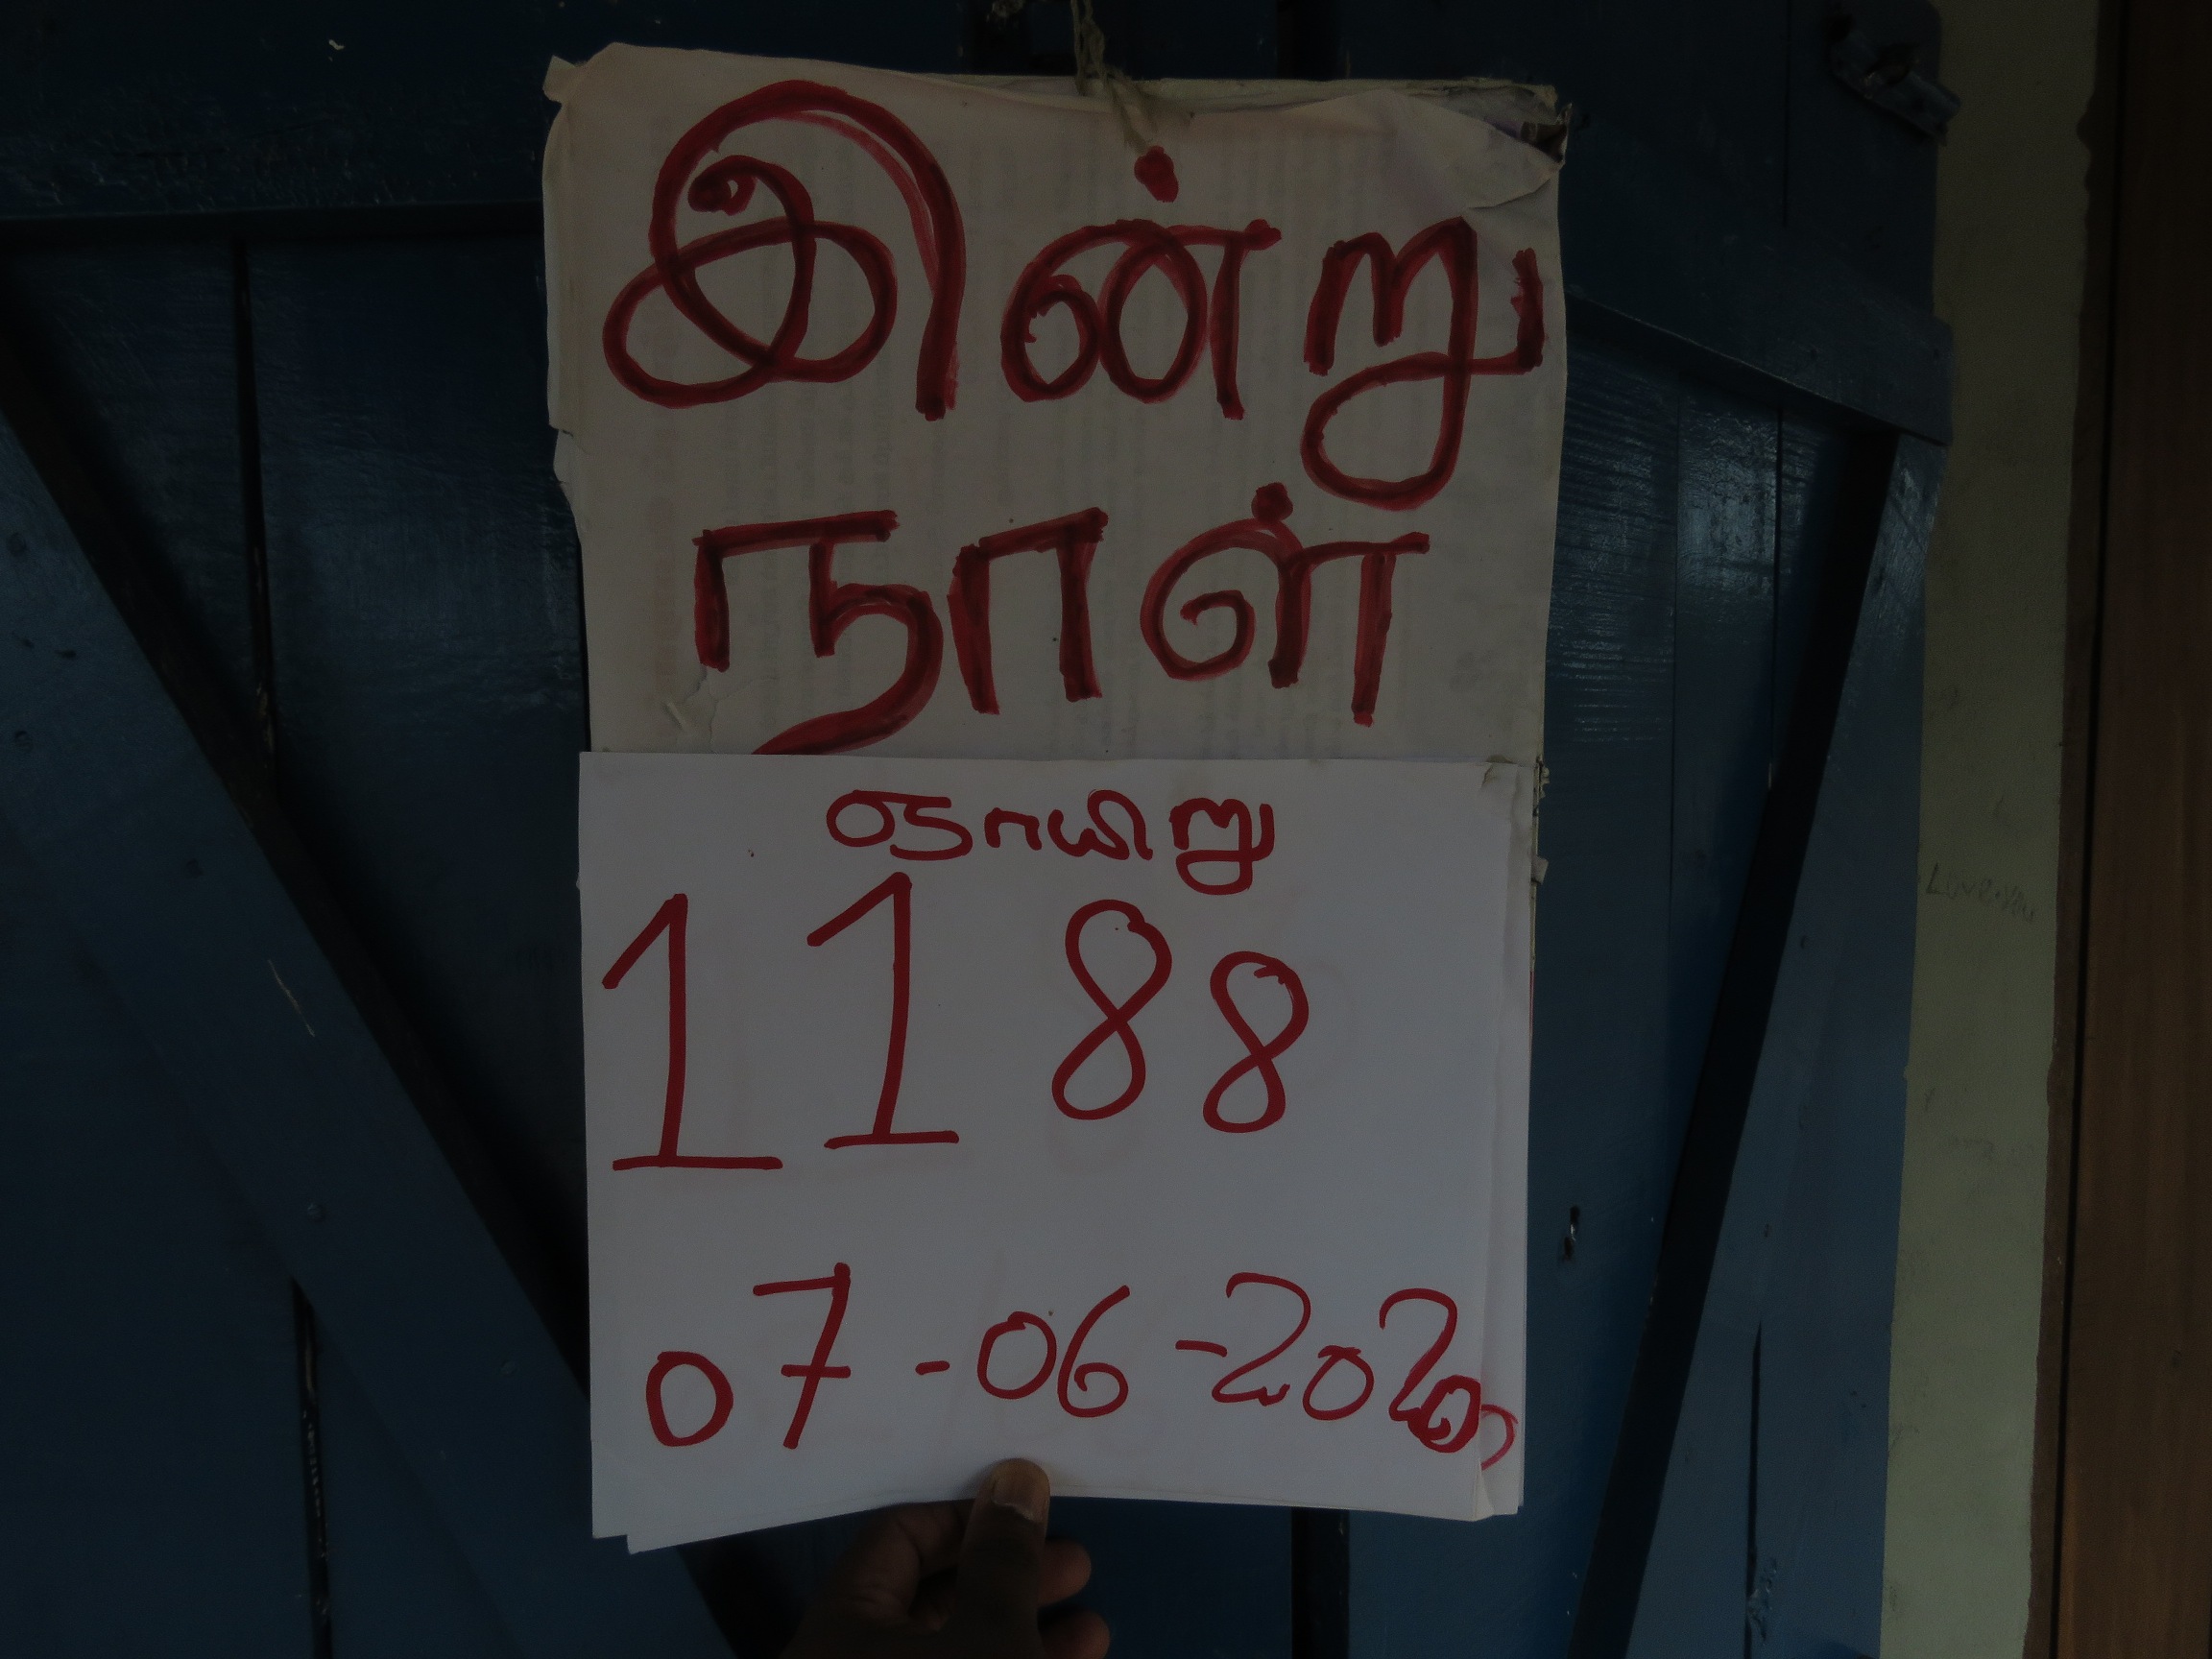 இன்று
நாள்
ஞாயிறு
1188
07-06-2020
LOVE.YOU